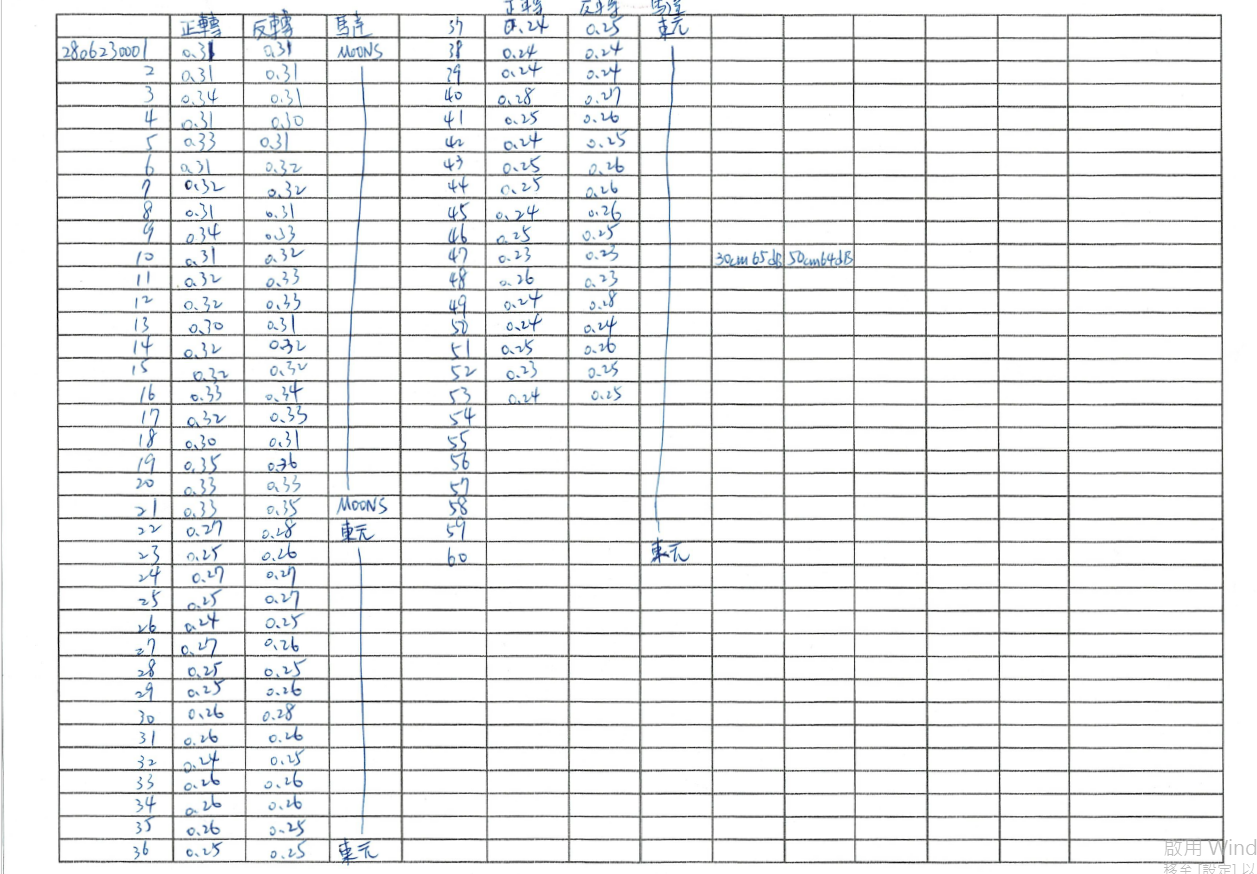 正轉 反轉 馬達 37 0.24 0.25 東元
正轉 反轉 馬達
2806230001 0.31 0.31 MOONS 38 0.24 0.24
2 0.31 0.31 39 0.24 0.24
3 0.34 0.31 40 0.28 0.27
4 0.31 0.30 41 0.25 0.26
5 0.33 0.31 42 0.24 0.25
6 0.31 0.32 43 0.25 0.26
7 0.32 0.32 44 0.25 0.26
8 0.31 0.31 45 0.24 0.26
9 0.34 0.33 46 0.25 0.25
10 0.31 0.32 47 0.23 0.23 30cm65dB 50cm64dB
11 0.32 0.33 48 0.26 0.23
12 0.32 0.33 49 0.24 0.28
13 0.30 0.31 50 0.24 0.24
14 0.32 0.32 51 0.25 0.26
15 0.32 0.32 52 0.23 0.25
16 0.33 0.34 53 0.24 0.25
17 0.32 0.33 54
18 0.30 0.31 55
19 0.35 0.36 56
20 0.33 0.33 57
21 0.33 0.35 MOONS 58
22 0.27 0.28 東元 59
23 0.25 0.26 60 東元
24 0.27 0.27
25 0.25 0.27
26 0.24 0.25
27 0.27 0.26
28 0.25 0.25
29 0.25 0.26
30 0.26 0.28
31 0.26 0.26
32 0.24 0.25
33 0.26 0.26
34 0.26 0.26
35 0.26 0.25
36 0.25 0.25 東元
啟用 Wind
移至 [設定] 以